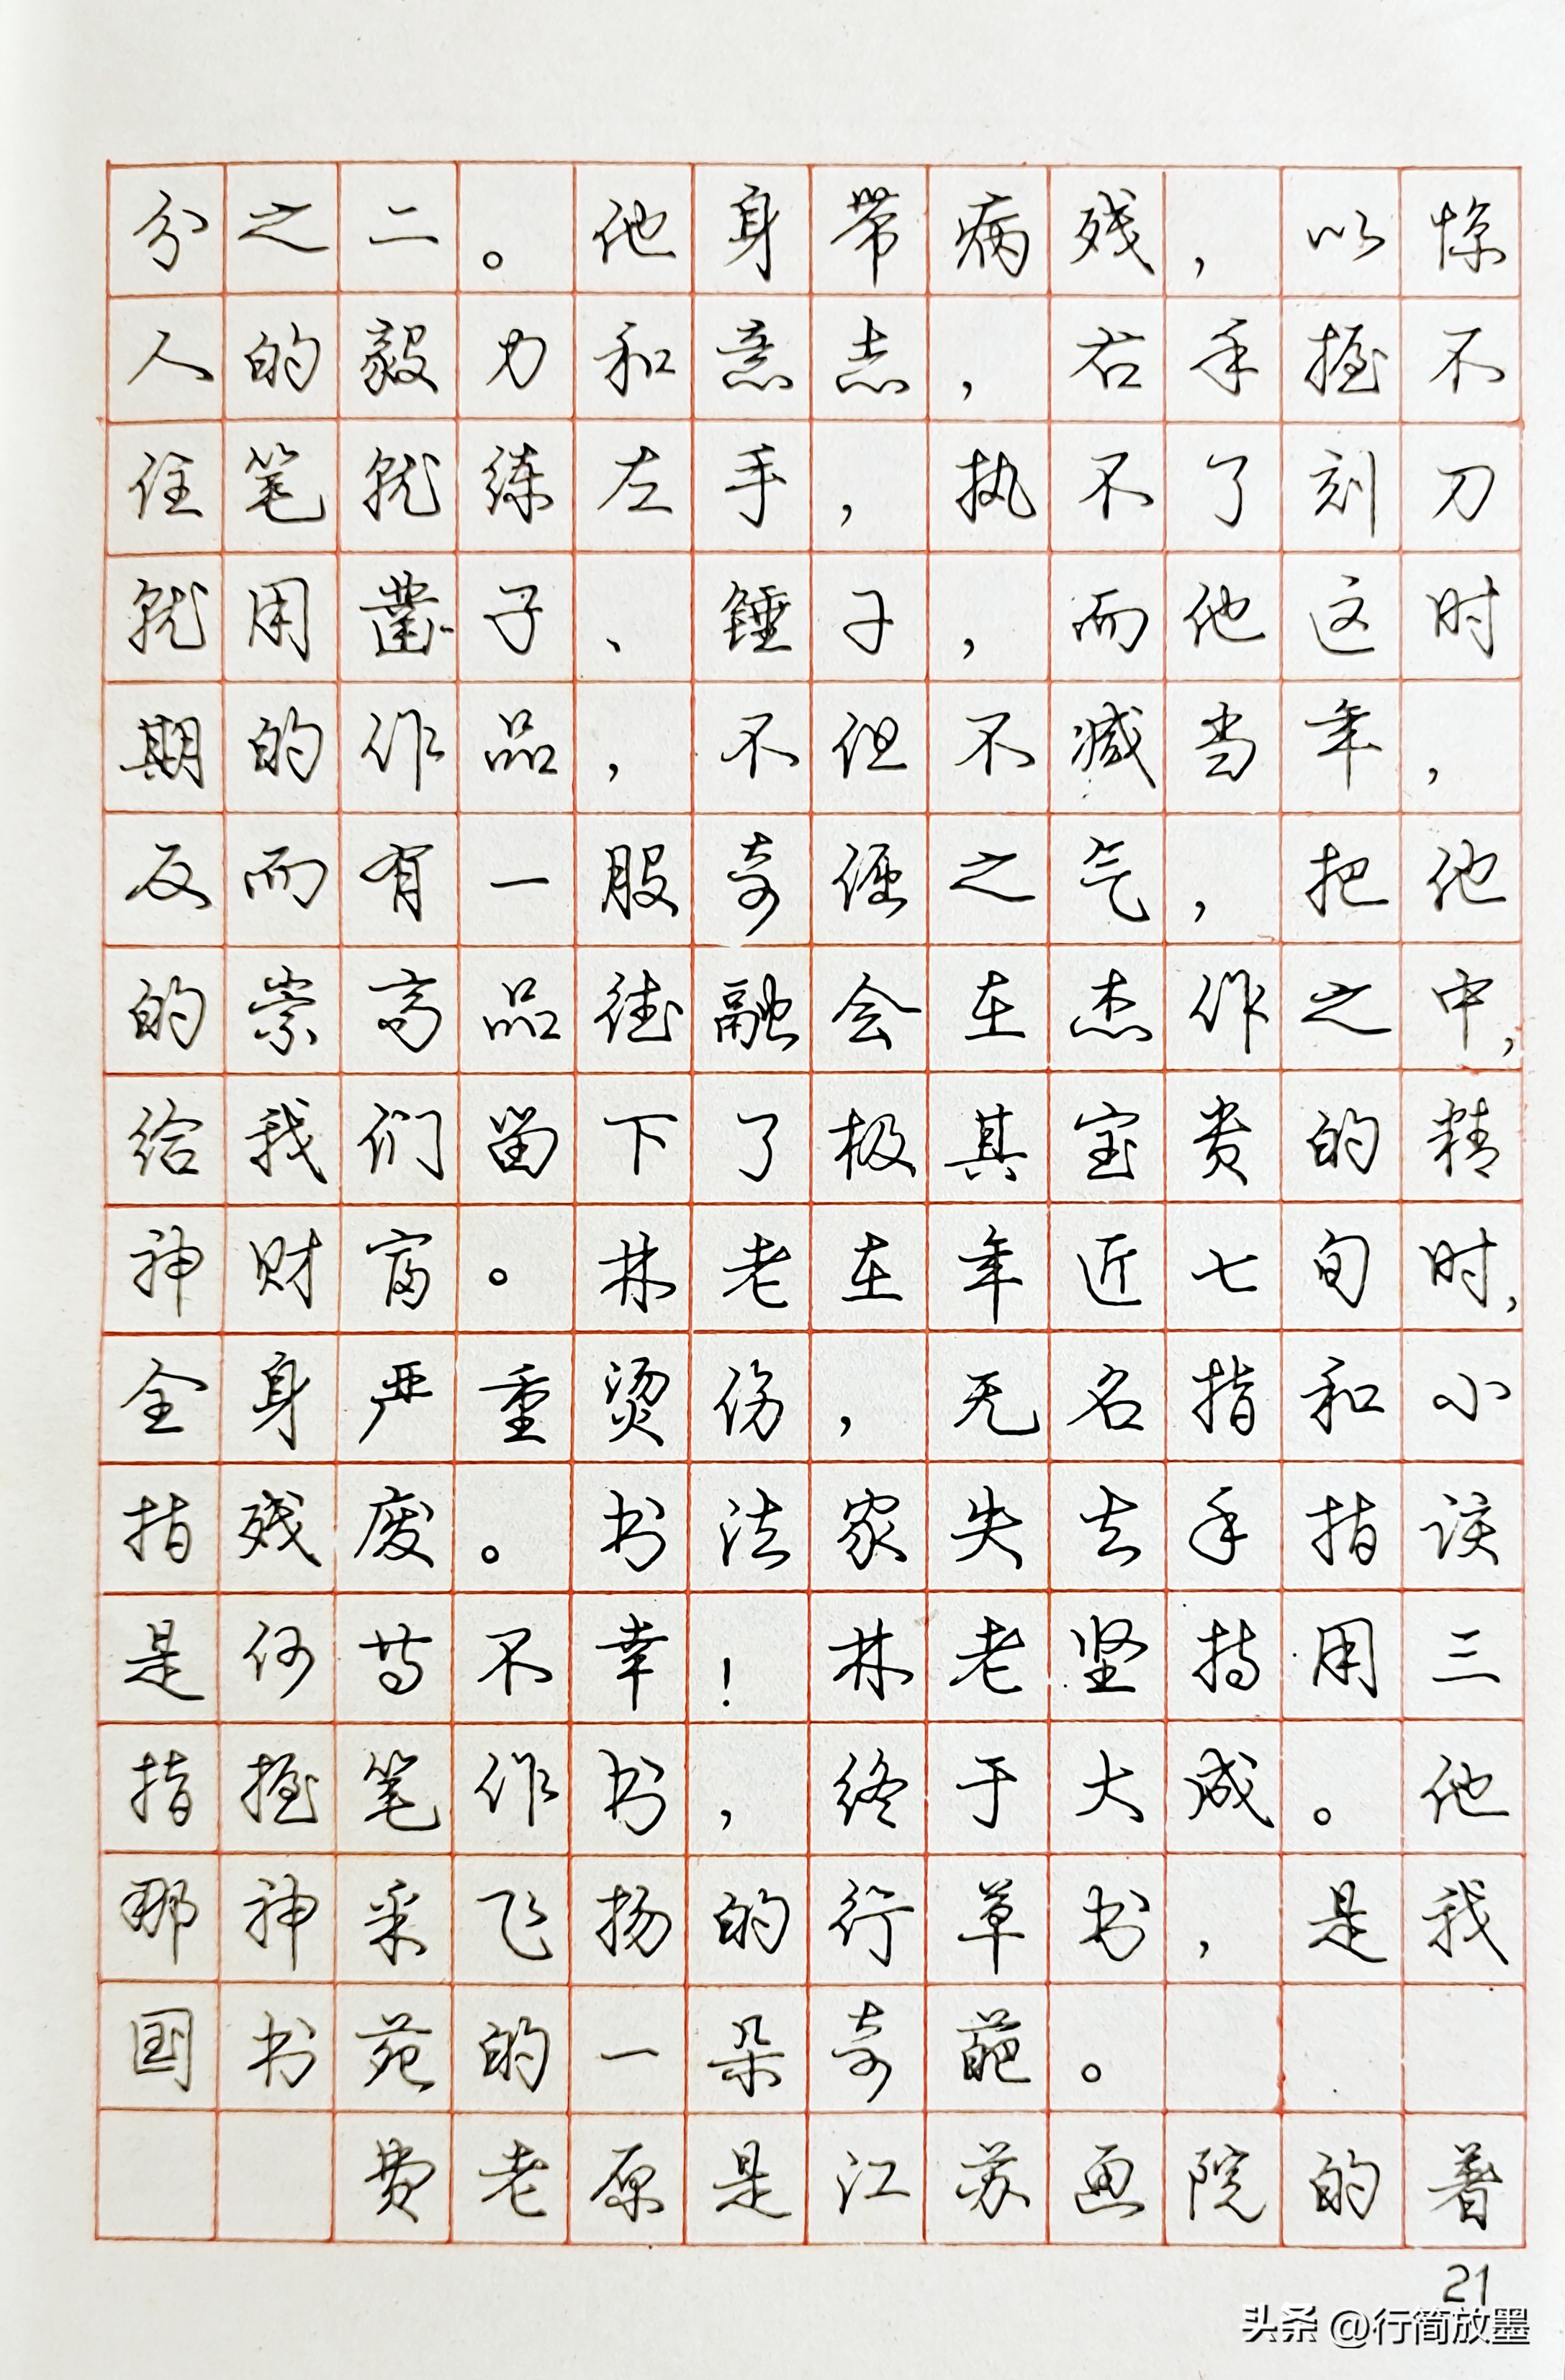 分之二。他身带病残，以惊
人的毅力和意志，右手握不
住笔就练左手，执不了刻刀
就用凿子、锤子，而他这时
期的作品，不但不减当年，
反而有一股奇倔之气，把他
的崇高品德融会在杰作之中，
给我们留下了极其宝贵的精
神财富。林老在年近七旬时，
全身严重烫伤，无名指和小
指残废。书法家失去手指该
是何等不幸！林老坚持用三
指握笔作书，终于大成。他
那神采飞扬的行草书，是我
国书苑的一朵奇葩。
费老原是江苏画院的著
21
头条 @行简放墨